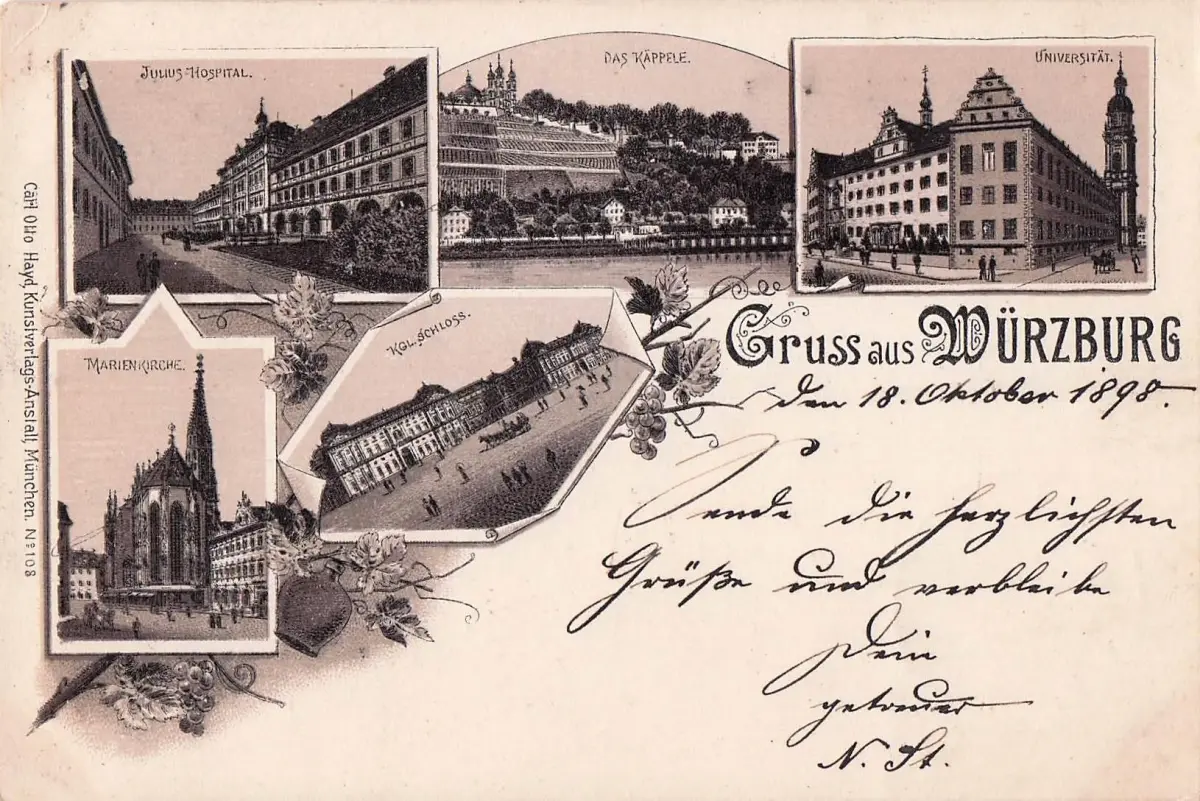 JULIUS-HOSPITAL.
DAS KÄPPELE.
UNIVERSITÄT.
MARIENKIRCHE.
KGL. SCHLOSS.
Gruss aus WÜRZBURG
den 18. Oktober 1898.
Sende die herzlichsten
Grüße und verbleibe
Dein
getreuer
N. St.
Carl Otto Hayd, Kunstverlags-Anstalt, München. No 108